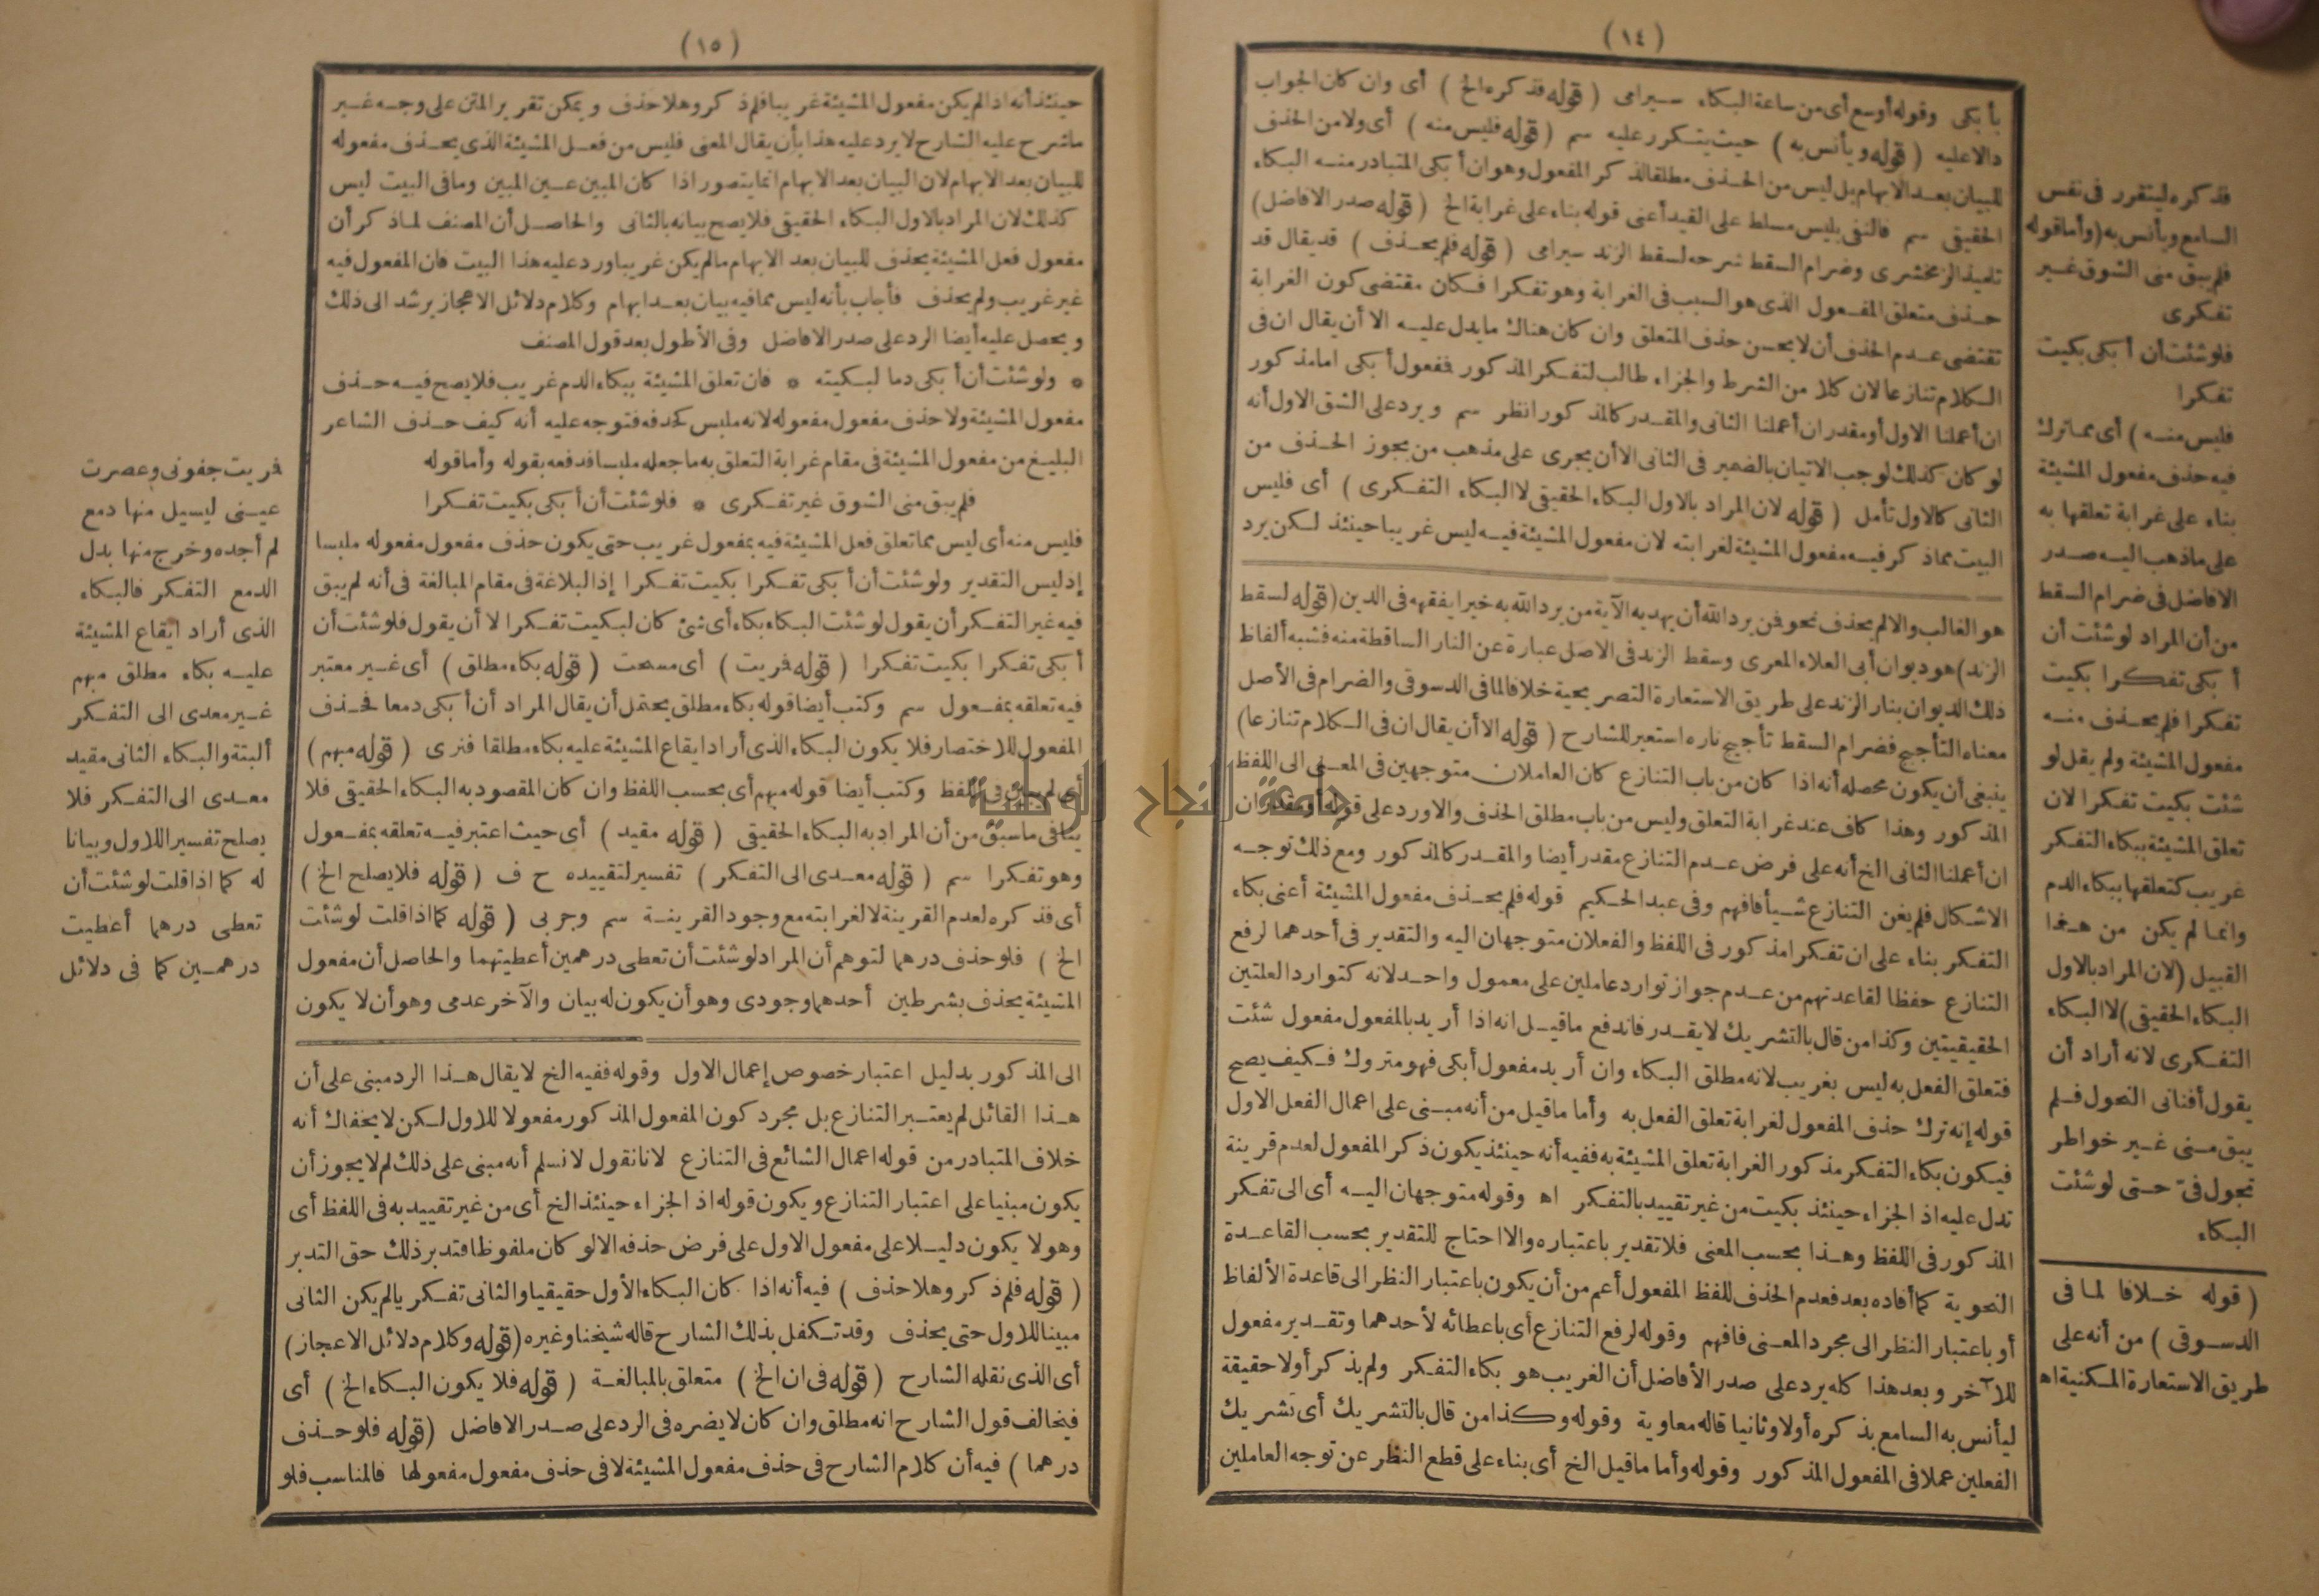 (١٤)
بأبكى وقوله أوسع أى من ساعة البكاء سيرامى (قوله فذكره الخ) أى وان كان الجواب
دالا عليه (قوله ويأنس به) حيث يتكرر عليه سم (قوله فليس منه) أى ولا من الحذف
للبيان بعد الابهام بل ليس من الحذف مطلقا لذكر المفعول وهو ان أبكى المتبادر منه البكاء
الحقيقى سم فالنفى بليس مسلط على القيد أعنى قوله بناء على غرابة الخ (قوله صدر الافاضل)
تلميذ الزمخشرى وضرام السقط شرحه لسقط الزند سيرامى (قوله فلم يحذف) قد يقال قد
حذف متعلق المفعول الذى هو السبب فى الغرابة وهو تفكرا فكان مقتضى كون الغرابة
تقتضى عدم الحذف أن لا يحسن حذف المتعلق وان كان هناك ما يدل عليه الا أن يقال ان فى
الكلام تنازعا لان كلا من الشرط والجزاء طالب لتفكر المذكور فمفعول أبكى اما مذكور
ان أعملنا الاول أو مقدر ان أعملنا الثانى والمقدر كالمذكور انظر سم ويرد على الشق الاول أنه
لو كان كذلك لوجب الاتيان بالضمير فى الثانى الا أن يجرى على مذهب من يجوز الحذف من
الثانى كالاول تأمل (قوله لان المراد بالاول البكاء الحقيقى لا البكاء التفكرى) أى فليس
البيت مماذكر فيه مفعول المشيئة لغرابته لان مفعول المشيئة فيه ليس غريبا حينئذ لكن يرد
هو الغالب والا لم يحذف نحو فمن يرد الله أن يهديه الآية من يرد الله به خيرا يفقهه فى الدين (قوله لسقط
الزند) هو ديوان أبى العلاء المعرى وسقط الزند فى الاصل عبارة عن النار الساقطة منه فشبه ألفاظ
ذلك الديوان بنار الزند على طريق الاستعارة التصريحية خلافا لما فى الدسوقى والضرام فى الأصل
معناه التأجيج فضرام السقط تأجيج ناره استعير للشارح (قوله الا أن يقال ان فى الكلام تنازعا)
ينبغى أن يكون محصله أنه اذا كان من باب التنازع كان العاملان متوجهين فى المعنى الى اللفظ
المذكور وهذا كاف عند غرابة التعلق وليس من باب مطلق الحذف والا ورد على قوله أو مقدر ان
ان أعملنا الثانى الخ أنه على فرض عدم التنازع مقدر أيضا والمقدر كالمذكور ومع ذلك توجه
الاشكال فلم يغن التنازع شيأ فافهم وفى عبد الحكيم قوله فلم يحذف مفعول المشيئة أعنى بكاء
التفكر بناء على ان تفكرا مذكور فى اللفظ والفعلان متوجهان اليه والتقدير فى أحدهما لرفع
التنازع حفظا لقاعدتهم من عدم جواز توارد عاملين على معمول واحد لانه كتوارد العلتين
الحقيقيتين وكذا من قال بالتشريك لا يقدر فاندفع ما قيل انه اذا أريد بالمفعول مفعول شئت
فتعلق الفعل به ليس بغريب لانه مطلق البكاء وان أريد مفعول أبكى فهو متروك فكيف يصح
قوله إنه ترك حذف المفعول لغرابة تعلق الفعل به وأما ما قيل من أنه مبنى على اعمال الفعل الاول
فيكون بكاء التفكر مذكور الغرابة تعلق المشيئة به ففيه أنه حينئذ يكون ذكر المفعول لعدم قرينة
تدل عليه اذ الجزاء حينئذ بكيت من غير تقييد بالتفكر اه وقوله متوجهان اليه أى الى تفكر
المذكور فى اللفظ وهذا بحسب المعنى فلا تقدير باعتباره والا احتاج للتقدير بحسب القاعدة
النحوية كما أفاده بعد فعدم الحذف للفظ المفعول أعم من أن يكون باعتبار النظر الى قاعدة الألفاظ
أو باعتبار النظر الى مجرد المعنى فافهم وقوله لرفع التنازع أى باعطائه لأحدهما وتقدير مفعول
للآخر وبعد هذا كله يرد على صدر الأفاضل أن الغريب هو بكاء التفكر ولم يذكر أولا حقيقة
ليأنس به السامع بذكره أولا وثانيا قاله معاوية وقوله وكذا من قال بالتشريك أى تشريك
الفعلين عملا فى المفعول المذكور وقوله وأما ما قيل الخ أى بناء على قطع النظر عن توجه العاملين
فذكره ليتقرر فى نفس
السامع ويأنس به (وأما قوله
فلم يبق منى الشوق غير
تفكرى
فلو شئت أن أبكى بكيت
تفكرا
فليس منه) أى مما ترك
فيه حذف مفعول المشيئة
بناء على غرابة تعلقها به
على ما ذهب اليه صدر
الافاضل فى ضرام السقط
من أن المراد لو شئت أن
أبكى تفكرا بكيت
تفكرا فلم يحذف منه
مفعول المشيئة ولم يقل لو
شئت بكيت تفكرا لان
تعلق المشيئة ببكاء التفكر
غريب كتعلقها ببكاء الدم
وانما لم يكن من هذا
القبيل (لان المراد بالاول
البكاء الحقيقى) لا البكاء
التفكرى لانه أراد أن
يقول أفنانى النحول فلم
يبق منى غير خواطر
تجول فىّ حتى لو شئت
البكاء
(قوله خلافا لما فى
الدسوقى) من أنه على
طريق الاستعارة المكنية اه
(١٥)
حينئذ أنه اذا لم يكن مفعول المشيئة غريبا فلم ذكر وهلا حذف ويمكن تقرير المتن على وجه غير
ما شرح عليه الشارح لا يرد عليه هذا بأن يقال المعنى فليس من فعل المشيئة الذى يحذف مفعوله
للبيان بعد الابهام لان البيان بعد الابهام انما يتصور اذا كان المبين عين المبين وما فى البيت ليس
كذلك لان المراد بالاول البكاء الحقيقى فلا يصح بيانه بالثانى والحاصل أن المصنف لما ذكر أن
مفعول فعل المشيئة يحذف للبيان بعد الابهام ما لم يكن غريبا ورد عليه هذا البيت فان المفعول فيه
غير غريب ولم يحذف فأجاب بأنه ليس مما فيه بيان بعد ابهام وكلام دلائل الاعجاز يرشد الى ذلك
ويحصل عليه أيضا الرد على صدر الافاضل وفى الأطول بعد قول المصنف
* ولو شئت أن أبكى دما لبكيته * فان تعلق المشيئة ببكاء الدم غريب فلا يصح فيه حذف
مفعول المشيئة ولا حذف مفعول مفعوله لانه ملبس كحذفه فتوجه عليه أنه كيف حذف الشاعر
البليغ من مفعول المشيئة فى مقام غرابة التعلق به ما جعله ملبسا فدفعه بقوله وأما قوله
فلم يبق منى الشوق غير تفكرى * فلو شئت أن أبكى بكيت تفكرا
فليس منه أى ليس مما تعلق فعل المشيئة فيه بمفعول غريب حتى يكون حذف مفعول مفعوله ملبسا
إذ ليس التقدير ولو شئت أن أبكى تفكرا بكيت تفكرا إذ البلاغة فى مقام المبالغة فى أنه لم يبق
فيه غير التفكر أن يقول لو شئت البكاء بكاء أى شئ كان لبكيت تفكرا لا أن يقول فلو شئت أن
أبكى تفكرا بكيت تفكرا (قوله فريت) أى مسحت (قوله بكاء مطلق) أى غير معتبر
فيه تعلقه بمفعول سم وكتب أيضا قوله بكاء مطلق يحتمل أن يقال المراد أن أبكى دمعا فحذف
المفعول للاختصار فلا يكون البكاء الذى أراد ايقاع المشيئة عليه بكاء مطلقا فنرى (قوله مبهم)
أى لم يعلق فى اللفظ وكتب أيضا قوله مبهم أى بحسب اللفظ وان كان المقصود به البكاء الحقيقى فلا
ينافى ما سبق من أن المراد به البكاء الحقيقى (قوله مقيد) أى حيث اعتبر فيه تعلقه بمفعول
وهو تفكرا سم (قوله معدى الى التفكر) تفسير لتقييده ح ف (قوله فلا يصلح الخ)
أى فذكره لعدم القرينة لا لغرابته مع وجود القرينة سم وجربى (قوله كما اذا قلت لو شئت
الخ) فلو حذف درهما لتوهم أن المراد لو شئت أن تعطى درهمين أعطيتهما والحاصل أن مفعول
المشيئة يحذف بشرطين أحدهما وجودى وهو أن يكون له بيان والآخر عدمى وهو أن لا يكون
الى المذكور بدليل اعتبار خصوص إعمال الاول وقوله ففيه الخ لا يقال هذا الرد مبنى على أن
هذا القائل لم يعتبر التنازع بل مجرد كون المفعول المذكور مفعولا للاول لكن لا يخفاك أنه
خلاف المتبادر من قوله اعمال الشائع فى التنازع لانا نقول لا نسلم أنه مبنى على ذلك لم لا يجوز أن
يكون مبنيا على اعتبار التنازع ويكون قوله اذ الجزاء حينئذ الخ أى من غير تقييد به فى اللفظ أى
وهو لا يكون دليلا على مفعول الاول على فرض حذفه الا لو كان ملفوظا فتدبر ذلك حق التدبر
(قوله فلم ذكر وهلا حذف) فيه أنه اذا كان البكاء الأول حقيقيا والثانى تفكريا لم يكن الثانى
مبينا للاول حتى يحذف وقد تكفل بذلك الشارح قاله شيخنا وغيره (قوله وكلام دلائل الاعجاز)
أى الذى نقله الشارح (قوله فى ان الخ) متعلق بالمبالغة (قوله فلا يكون البكاء الخ) أى
فيخالف قول الشارح انه مطلق وان كان لا يضره فى الرد على صدر الافاضل (قوله فلو حذف
درهما) فيه أن كلام الشارح فى حذف مفعول المشيئة لا فى حذف مفعول مفعولها فالمناسب فلو
فريت جفونى وعصرت
عينى ليسيل منها دمع
لم أجده وخرج منها بدل
الدمع التفكر فالبكاء
الذى أراد ايقاع المشيئة
عليه بكاء مطلق مبهم
غير معدى الى التفكر
ألبتة والبكاء الثانى مقيد
معدى الى التفكر فلا
يصلح تفسير اللاول وبيانا
له كما اذا قلت لو شئت أن
تعطى درهما أعطيت
درهمين كما فى دلائل
جامعة النجاح الوطنية